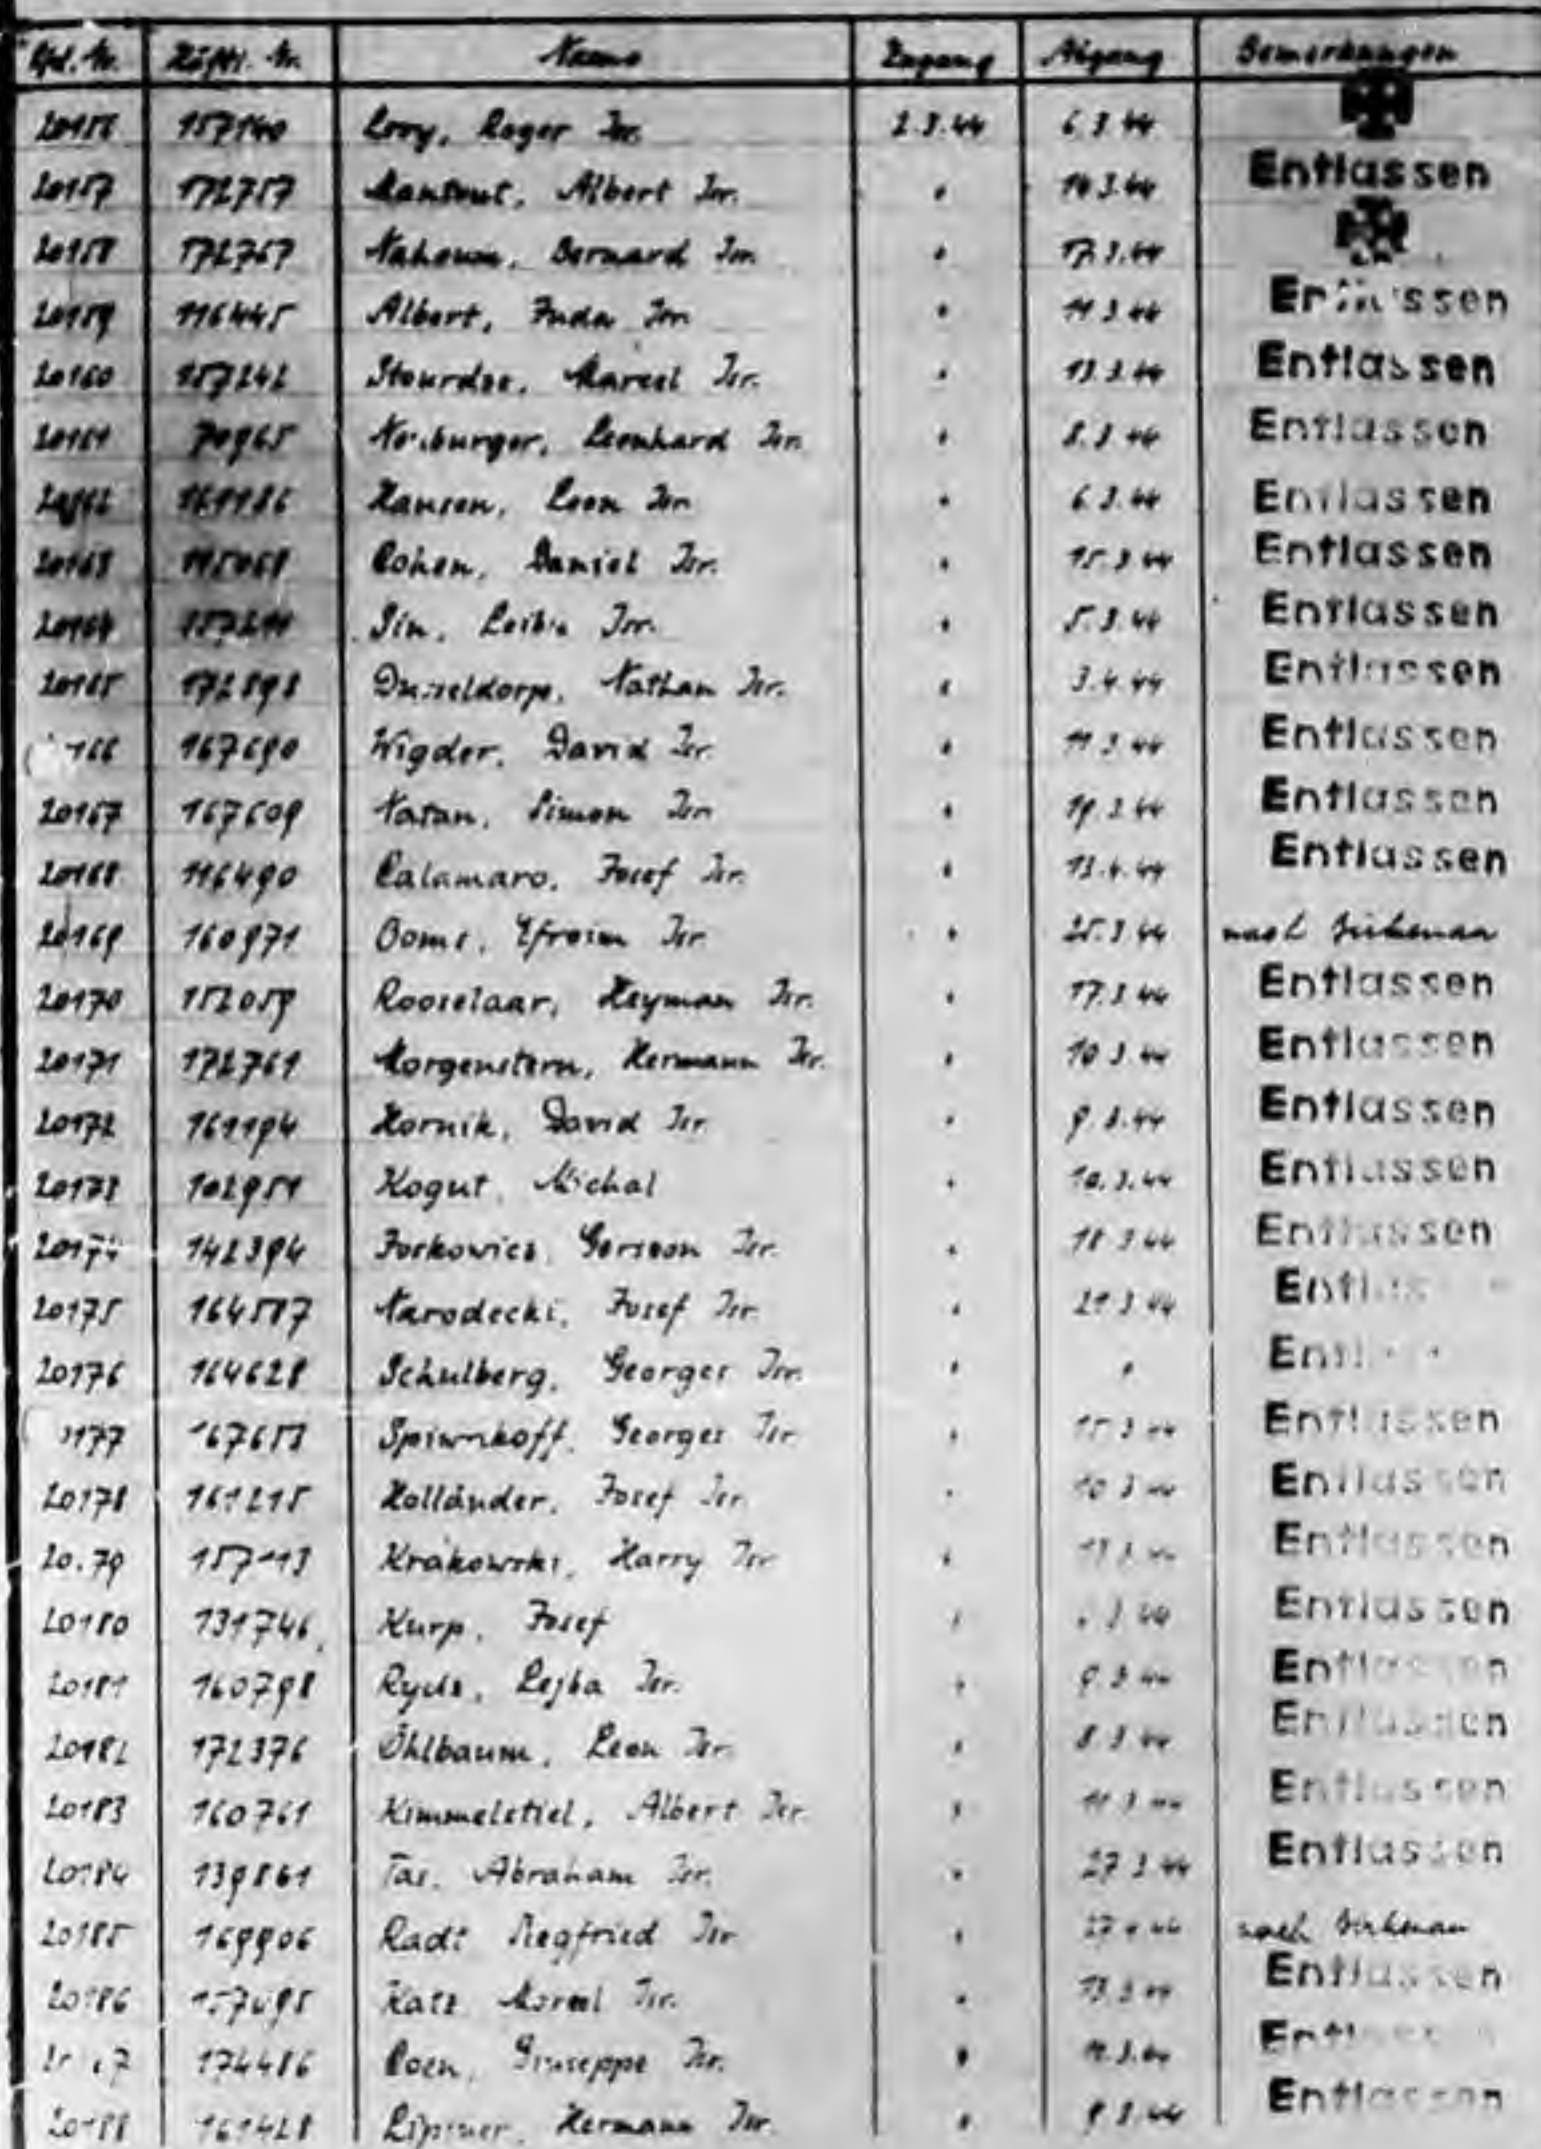 Lfd. Nr. Häftl. Nr. Name Zugang Abgang Bemerkungen
20156 157140 Levy, Roger Isr. 2.3.44 6.3.44
20157 172757 Albert Isr. " 14.3.44 Entlassen
20158 172767 Nahoum, Bernard Isr. " 17.3.44
20159 116445 Albert, Juda Isr. " 11.3.44 Entlassen
20160 157242 Stourdze, Marcel Isr. " 13.3.44 Entlassen
20161 70965 Neuburger, Leonhard Isr. " 8.3.44 Entlassen
20162 161186 Hansen, Leon Isr. " 6.3.44 Entlassen
20163 115068 Cohen, Daniel Isr. " 15.3.44 Entlassen
20164 Isr. " 5.3.44 Entlassen
20165 172898 Dusseldorp, Nathan Isr. " 3.4.44 Entlassen
166 167690 Wigder, David Isr. " 11.3.44 Entlassen
20167 167609 Natan, Simon Isr. " 19.3.44 Entlassen
20168 116490 Calamaro, Josef Isr. " 13.4.44 Entlassen
20169 160971 Ooms, Efroim Isr. " 25.3.44 nach Birkenau
20170 152059 Rooselaar, Heyman Isr. " 17.3.44 Entlassen
20171 172761 Morgenstern, Hermann Isr. " 10.3.44 Entlassen
20172 161194 Hornik, David Isr. " 9.3.44 Entlassen
20173 102951 Kogut, Michal " 10.3.44 Entlassen
20174 142394 Gerszon Isr. " 18.3.44 Entlassen
20175 164587 Narodecki, Josef Isr. " 21.3.44 Entlas
20176 164628 Schulberg, Georges Isr. " " Entl
177 167653 Georges Isr. " 15.3.44 Entlassen
20178 161215 Holländer, Josef Isr. " 10.3.44 Entlassen
20179 157113 Krakowski, Harry Isr. " 13.3.44 Entlassen
20180 131746 Kurp, Josef " 3.44 Entlassen
20181 160798 Lejba Isr. " 9.3.44 Entlassen
20182 172376 Öhlbaum, Leon Isr. " 8.3.44 Entlassen
20183 160761 Kimmelstiel, Albert Isr. " 11.3.44 Entlassen
20184 139861 Tas, Abraham Isr. " 27.3.44 Entlassen
20185 169906 Radt Siegfried Isr. " nach Birkenau
20186 157095 Katz Marcel Isr. " 13.3.44 Entlassen
174486 Coen, Giuseppe Isr. " 11.3.44 Entlassen
20188 161428 Hermann Isr. " 9.3.44 Entlassen